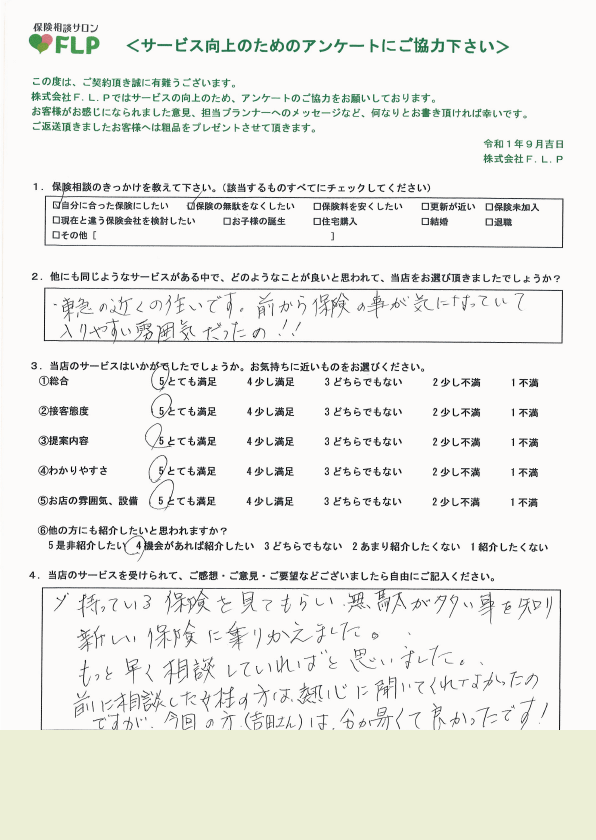 保険相談サロン
FLP
＜サービス向上のためのアンケートにご協力下さい＞
この度は、ご契約頂き誠に有難うございます。
株式会社Ｆ.Ｌ.Ｐではサービスの向上のため、アンケートのご協力をお願いしております。
お客様がお感じになられました意見、担当プランナーへのメッセージなど、何なりとお書き頂ければ幸いです。
ご返送頂きましたお客様へは粗品をプレゼントさせて頂きます。
令和１年９月吉日
株式会社Ｆ.Ｌ.Ｐ
１．保険相談のきっかけを教えて下さい。（該当するものすべてにチェックしてください）
☑自分に合った保険にしたい ☑保険の無駄をなくしたい □保険料を安くしたい □更新が近い □保険未加入
□現在と違う保険会社を検討したい □お子様の誕生 □住宅購入 □結婚 □退職
□その他［ ］
２．他にも同じようなサービスがある中で、どのようなことが良いと思われて、当店をお選び頂きましたでしょうか？
の近くの住いです。前から保険の事が気になっていて
入りやすい雰囲気だったの!!
３．当店のサービスはいかがでしたでしょうか。お気持ちに近いものをお選びください。
①総合 ５とても満足 ４少し満足 ３どちらでもない ２少し不満 １不満
②接客態度 ５とても満足 ４少し満足 ３どちらでもない ２少し不満 １不満
③提案内容 ５とても満足 ４少し満足 ３どちらでもない ２少し不満 １不満
④わかりやすさ ５とても満足 ４少し満足 ３どちらでもない ２少し不満 １不満
⑤お店の雰囲気、設備 ５とても満足 ４少し満足 ３どちらでもない ２少し不満 １不満
⑥他の方にも紹介したいと思われますか？
５是非紹介したい ４機会があれば紹介したい ３どちらでもない ２あまり紹介したくない １紹介したくない
４．当店のサービスを受けられて、ご感想・ご意見・ご要望などございましたら自由にご記入ください。
持っている保険を見てもらい無駄が多い事を知り
新しい保険に乗りかえました。
もっと早く相談していればと思いました。
前に相談した女性の方は、熱心に聞いてくれてなかったの
ですが、今回の方(吉田さん)は、分か易くて良かったです!